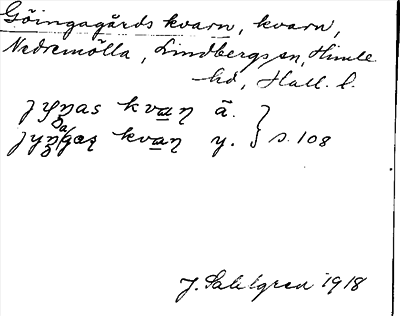 Göingagårds kvarn, kvarn,
Nedremölla, Lindbergs sn, Himle
hd, Hall. l.
jyŋas kvaṉ ä.
kvaṉ y. } s. 108
J. Sahlgren 1918